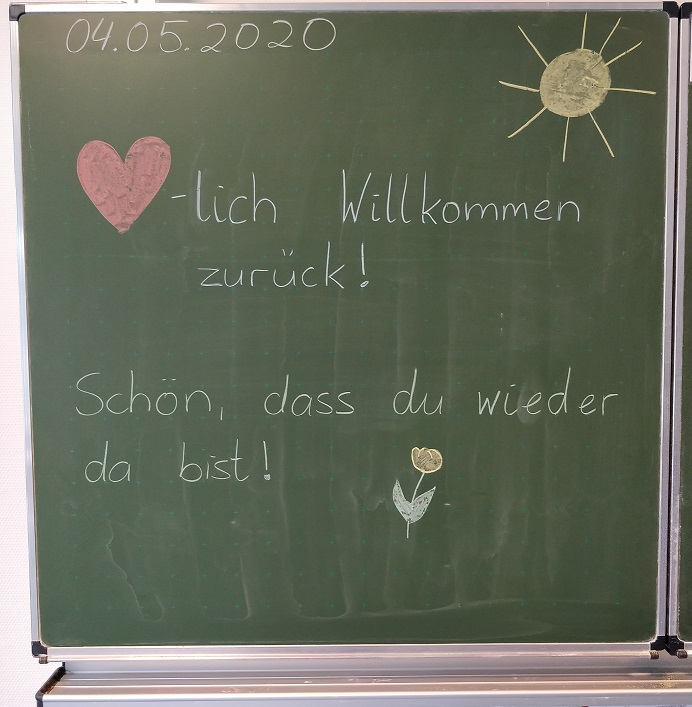 04.05.2020
-lich Willkommen
zurück!
Schön, dass du wieder
da bist!